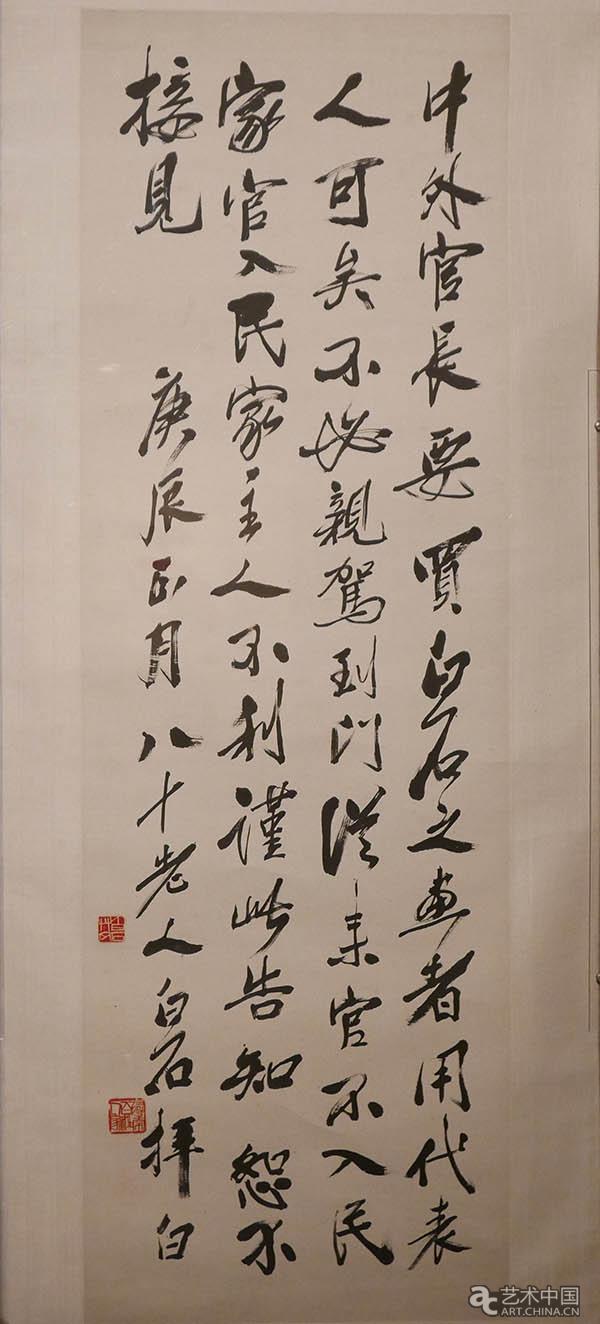 中外官長要買白石之畫者用代表
人可矣不必親駕到門從来官不入民
家官入民家主人不利謹此告知恕不
接見
庚辰正月八十老人白石拜白
艺术中国
ART.CHINA.CN